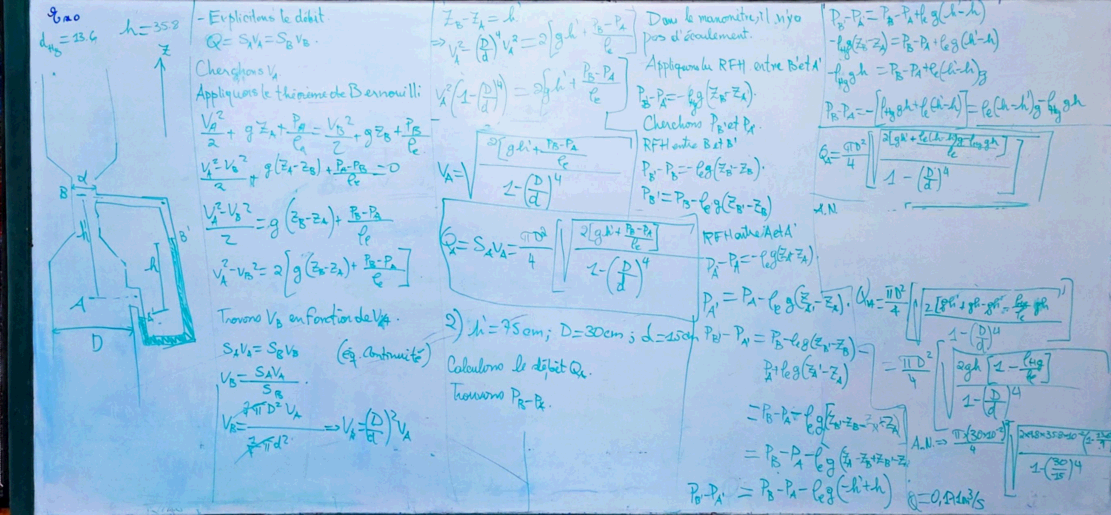 d_Hg = 13.6
h = 35.8
Z
d
B
B'
h'
h
A
A'
D
- Explicitons le débit
Q = S_A V_A = S_B V_B.
Cherchons V_A
Appliquons le théorème de Bernouilli
V_A²/2 + g Z_A + P_A/ρ_e = V_B²/2 + g Z_B + P_B/ρ_e
(V_A² - V_B²)/2 + g(Z_A - Z_B) + (P_A - P_B)/ρ_e = 0
(V_A² - V_B²)/2 = g(Z_B - Z_A) + (P_B - P_A)/ρ_e
V_A² - V_B² = 2[g(Z_B - Z_A) + (P_B - P_A)/ρ_e]
Trouvons V_B en fonction de V_A.
S_A V_A = S_B V_B (éq. continuité)
V_B = S_A V_A / S_B.
⇒ V_A = (D/d)² V_A
Z_B - Z_A = h'
⇒ V_A² - (D/d)⁴ V_A² = 2[gh' + (P_B - P_A)/ρ_e]
V_A² (1 - (D/d)⁴) = 2[gh' + (P_B - P_A)/ρ_e]
V_A = √(2[gh' + (P_B - P_A)/ρ_e] / (1 - (D/d)⁴))
Q_A = S_A V_A = πD²/4 [√(2[gh' + (P_B - P_A)/ρ_e] / (1 - (D/d)⁴))]
2) h' = 75cm ; D = 30cm ; d = 15cm
Calculons le débit Q_A.
Trouvons P_B - P_A.
Dans le manomètre, il n'y a
pas d'écoulement.
Appliquons la RFH entre B' et A'
P_B' - P_A' = -ρ_Hg g(Z_B - Z_A).
Cherchons P_B' et P_A'.
RFH entre B et B'
P_B' - P_B = -ρ_e g(Z_B' - Z_B).
P_B' = P_B - ρ_e g(Z_B' - Z_B)
RFH entre A et A'
P_A' - P_A = -ρ_e g(Z_A' - Z_A)
P_A' = P_A - ρ_e g(Z_A' - Z_A).
P_B' - P_A' = P_B - ρ_e g(Z_B' - Z_B) -
P_A + ρ_e g(Z_A' - Z_A)
= P_B - P_A - ρ_e g[Z_B' - Z_B - Z_A' + Z_A]
P_B' - P_A' = P_B - P_A - ρ_e g(-h' + h)
P_B' - P_A' = P_B - P_A + ρ_e g(h' - h)
-ρ_Hg g(Z_B - Z_A) = P_B - P_A + ρ_e g(h' - h)
-ρ_Hg g h = P_B - P_A + ρ_e (h' - h) g
P_B - P_A = -[ρ_Hg g h + ρ_e (h' - h)g] = ρ_e (h - h')g - ρ_Hg g h
Q_A = πD²/4 [√(2[gh' + (ρ_e (h - h')g - ρ_Hg g h)/ρ_e] / (1 - (D/d)⁴))]
A.N
Q_A = πD²/4 [√(2[gh' + gh - gh' - ρ_Hg/ρ_e gh] / (1 - (D/d)⁴))]
= πD²/4 [√(2gh[1 - ρ_Hg/ρ_e] / (1 - (D/d)⁴))]
A.N ⇒
Q = 0,171 m³/s